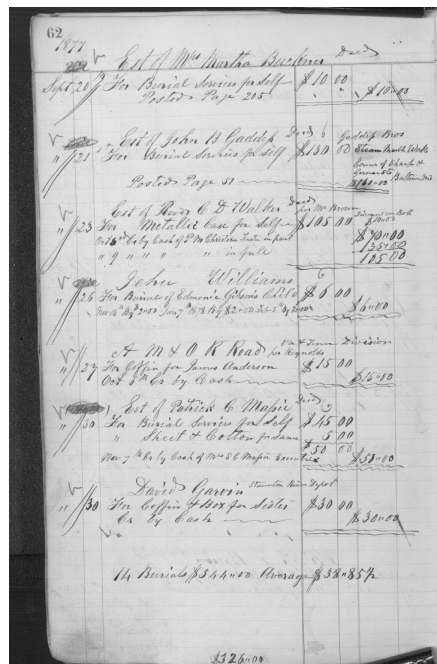 62
1877
Est of Mrs Martha Buckner Decd
Sept 20 For Burial Services for Self $10 00
Posted Page 205 " " $10=00
Est of John B Gaddess Decd 6 Gaddess Bros
" 21 For Burial Services for Self $130 00 Steam Marble Works
Corner of Sharp &
German St
Posted Page 51 $130=00 Baltimore Md
Est of Revd C D Walker Decd per Mr Brown
" 23 For Metallic Case for Self $105 00
Discount on Book
$ 70=00
35=00
" 9 " " " " in full 105 00
Jehu Williams 6
" 26 For Burial of Edmonia Gibson's Child $6 00
Nov 14th By $2=00 Jany 7th 1878 By $2=00 Feb 5th By 2=00 $6=00
A M & O R Road Va & Tenn Division
per Reynolds
" 27 For Coffin for James Anderson $15 00
Oct 6th Cr by Cash $15=00
Est of Patrick C Massie Decd
" 30 For Burial Services for Self $45 00
" Sheet & Cotton for Same 5 00
$50 00
Nov 7th Cr by Cash of Mrs S C Massie Executrix $50=00
David Garvin Staunton River Depot
" 30 For Coffin & Box for Sister $30 00
Cr by Cash $30=00
14 Burials $544=00 Average $38=85½
$326=00